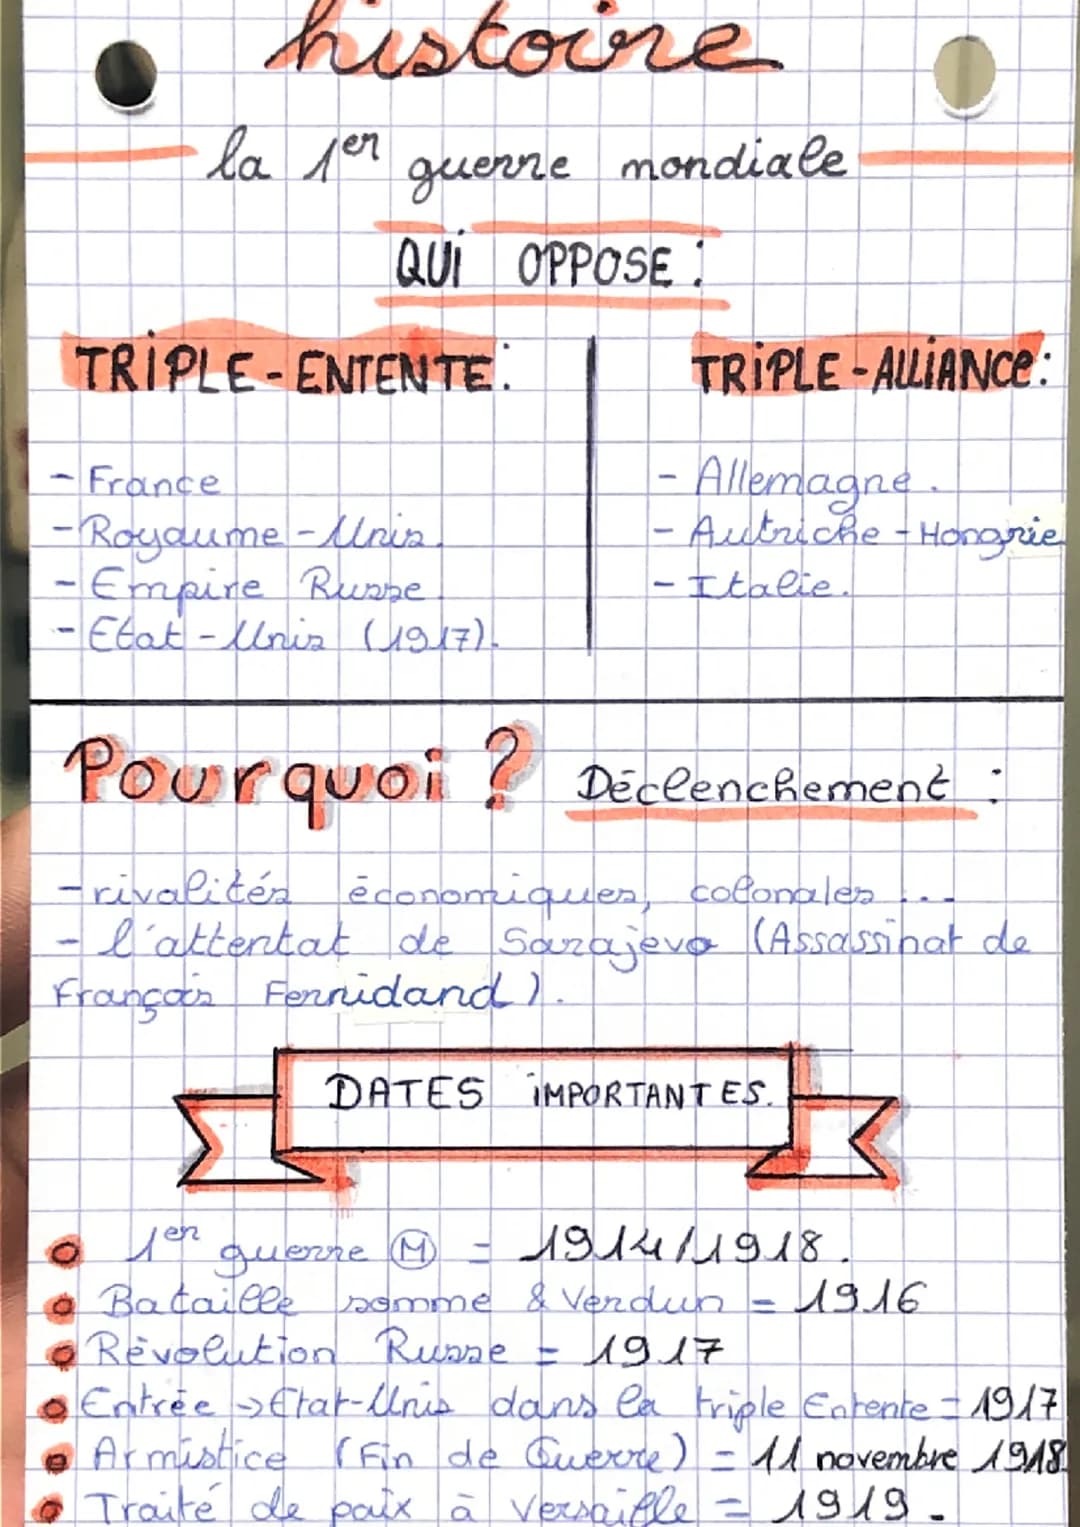 histoire
la 1er guerre mondiale
QUI OPPOSE :
TRIPLE-ENTENTE :
- France
- Royaume-Unis.
- Empire Russe.
- Etat-Unis (1917).
TRIPLE-ALLIANCE :
- Allemagne.
- Autriche-Hongrie
- Italie.
Pourquoi ? Déclenchement :
- rivalités économiques, colonales ...
- l'attentat de Sarajevo (Assassinat de
François Fernidand).
DATES IMPORTANTES.
1er guerre M = 1914/1918.
Bataille somme & Verdun = 1916
Révolution Russe = 1917
Entrée → Etat-Unis dans la triple Entente = 1917
Armistice (Fin de Guerre) = 11 novembre 1918
Traité de paix à Versaille = 1919.